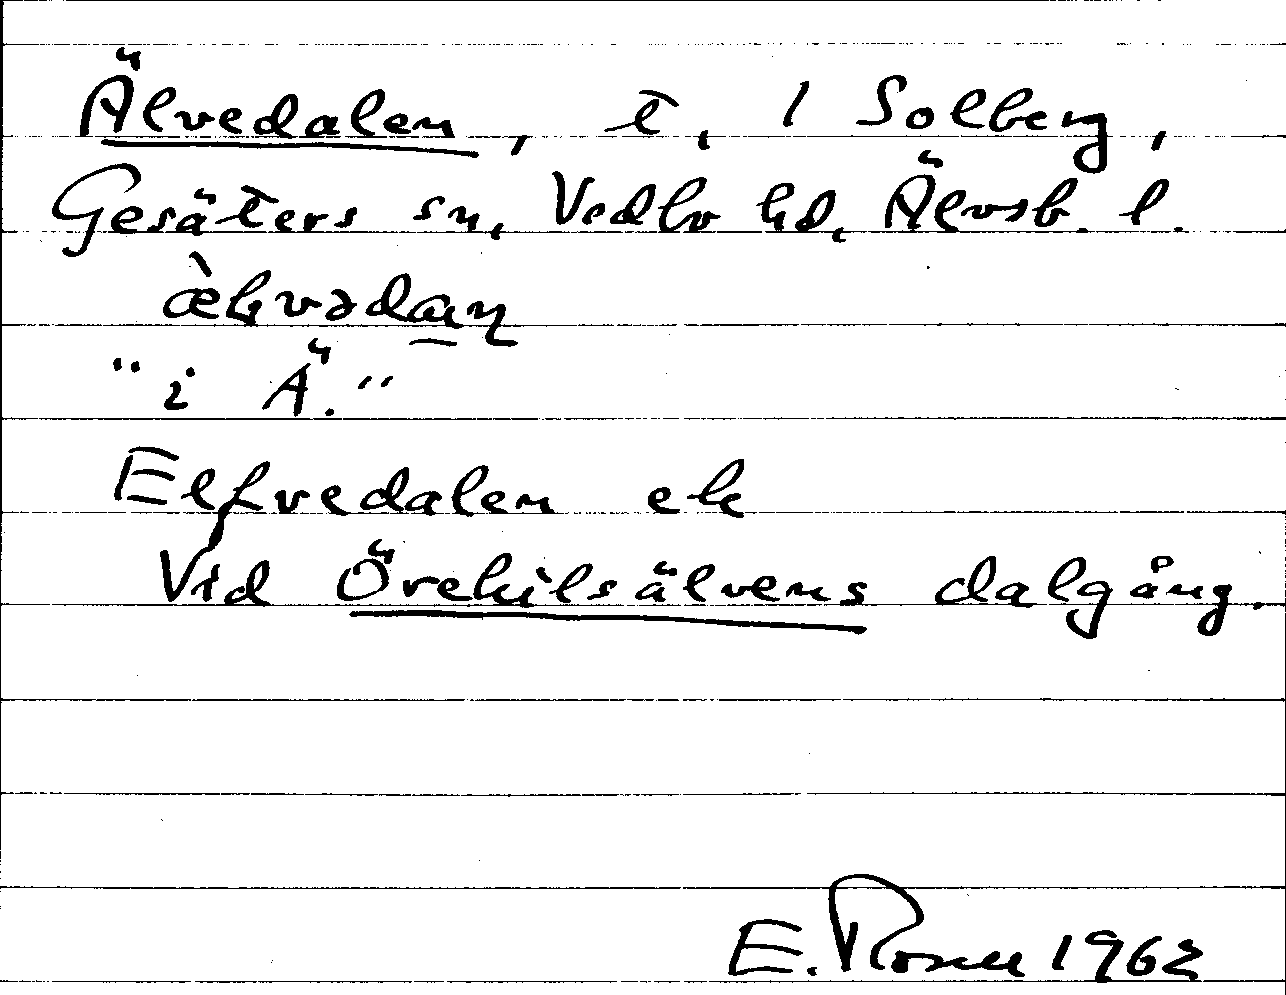 Älvedalen, t. 1 Solberg,
Gesäters sn, Vedbo hd, Älvsb. l.
"i Ä."
Elfvedalen ek
Vid Örekilsälvens dalgång.
E. 1962